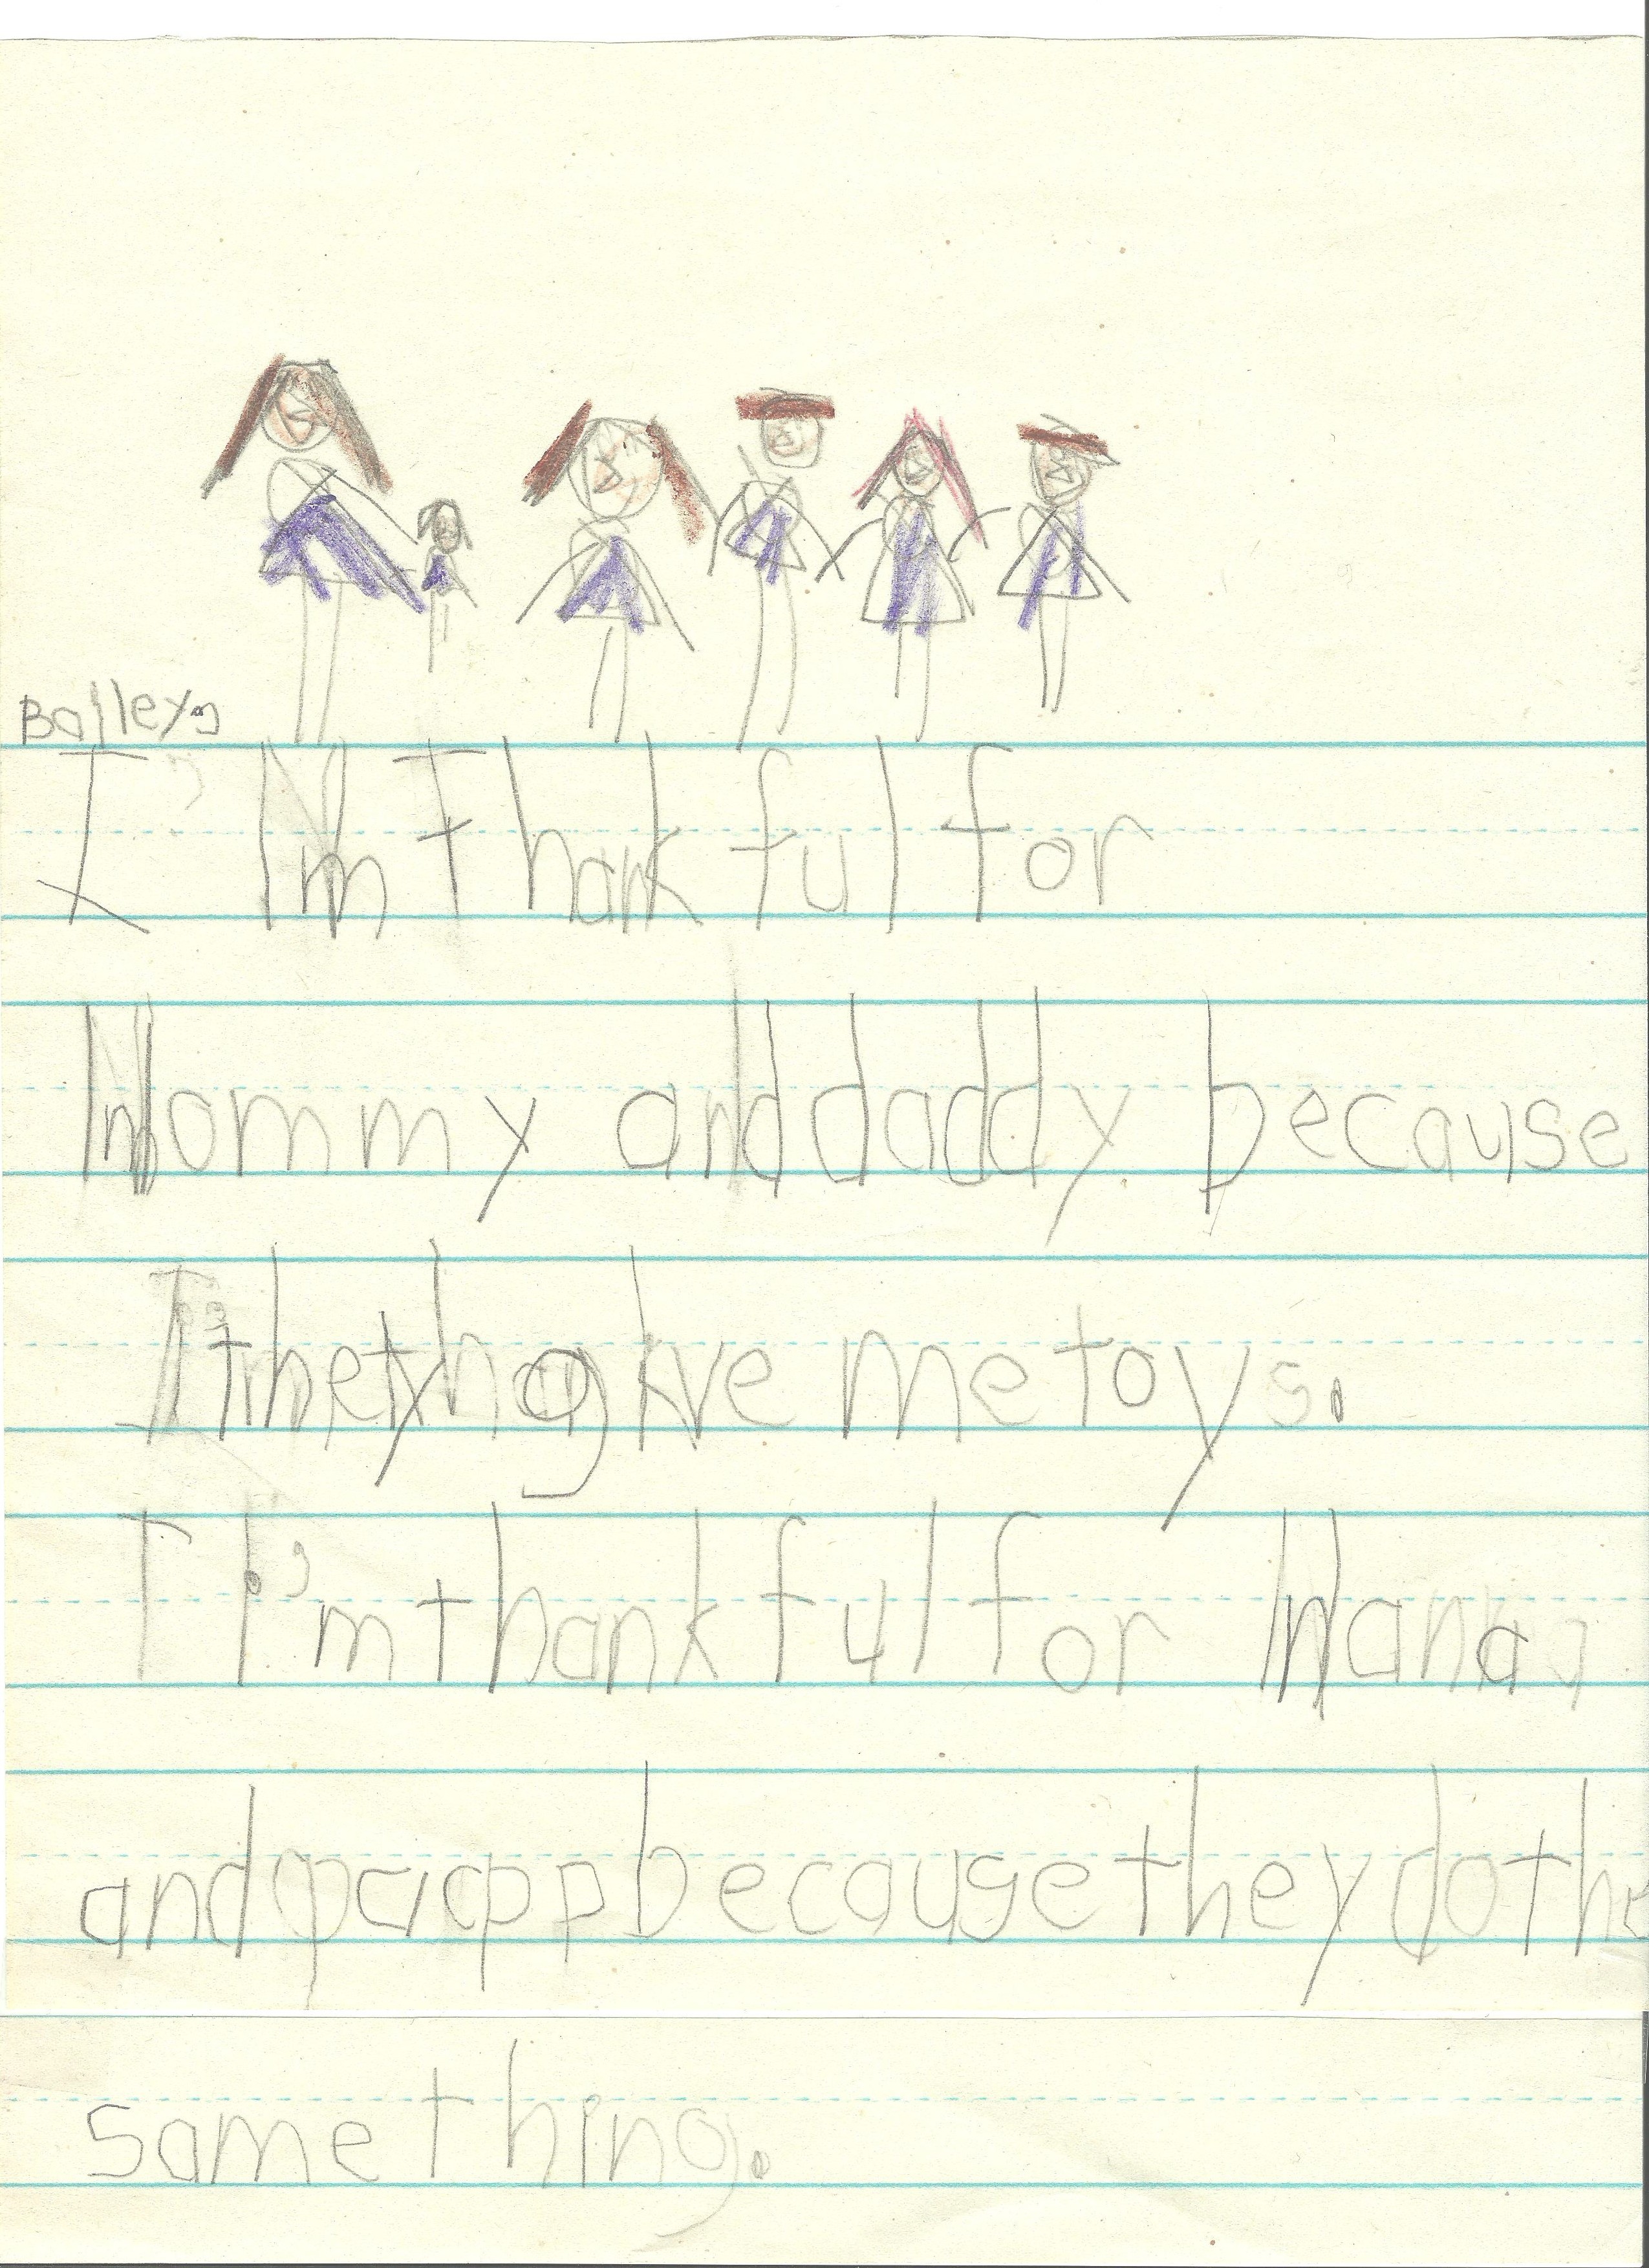 Bailey
I'm thankful for
mommy and daddy because
they give me toys.
I'm thankful for Nana
and papp because they do the
same thing.